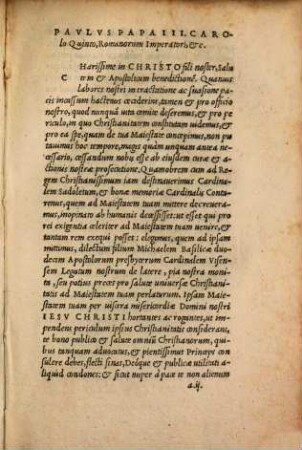 PAVLVS PAPA III. CARO-
lo Quinto, Romanorum Imperatori &c.
Harissime in CHRISTO fili noster, Salu
C tem & Apostolicam benedictionē. Quanuis
labores nostri in tractatione ac suasione pa-
cis incassum hactenus ceciderint, tamen & pro officio
nostro, quod nunquā uita comite deseremus, & pro pe
riculo, in quo Christianitatem constitutam uidemus, &
pro ea spe, quam de tua Maiestate concepimus, non pu
tauimus hoc tempore, magis quàm unquam antea ne-
cessario, cessandum nobis esse ab eiusdem curæ & a-
ctionis nostræ prosecutione. Quamobrem cum ad
Regem Christianissimum iam destinauerimus Cardina-
lem Sadoletum, & bonæ memoriæ Cardinalis Conta-
renus, quem ad Maiestatem tuam mittere decreuera-
mus, inopinatò ab humanis decessisset: ut esset qui pro
rei exigentia celeriter ad Maiestatem tuam uenire, &
tantam rem exequi posset: elegimus, quem ad ipsam
mittimus, dilectum filium Michaelem Basilicæ duode-
decim Apostolorum presbyterum Cardinalem Visen-
sem Legatum nostrum de latere, qui nostra moni-
ta, seu potius preces pro salute uniuersæ Christianita
tis ad Maiestatem tuam perlaturum. Ipsam Maie-
statem tuam per uiscera misericordiæ Domini nostri
IESV CHRISTI hortantes ac rogantes, ut
impendens periculum ipsius Christianitatis considerans,
te bono publico & saluti omniū Christianorum, qui-
bus tanquam aduocatus, & pientissimus Princeps con
sulere debes, flecti sinas, Deóque & publicæ utilitati a-
liquid condones: & sicut nuper à pace te non alienum
a.ij.